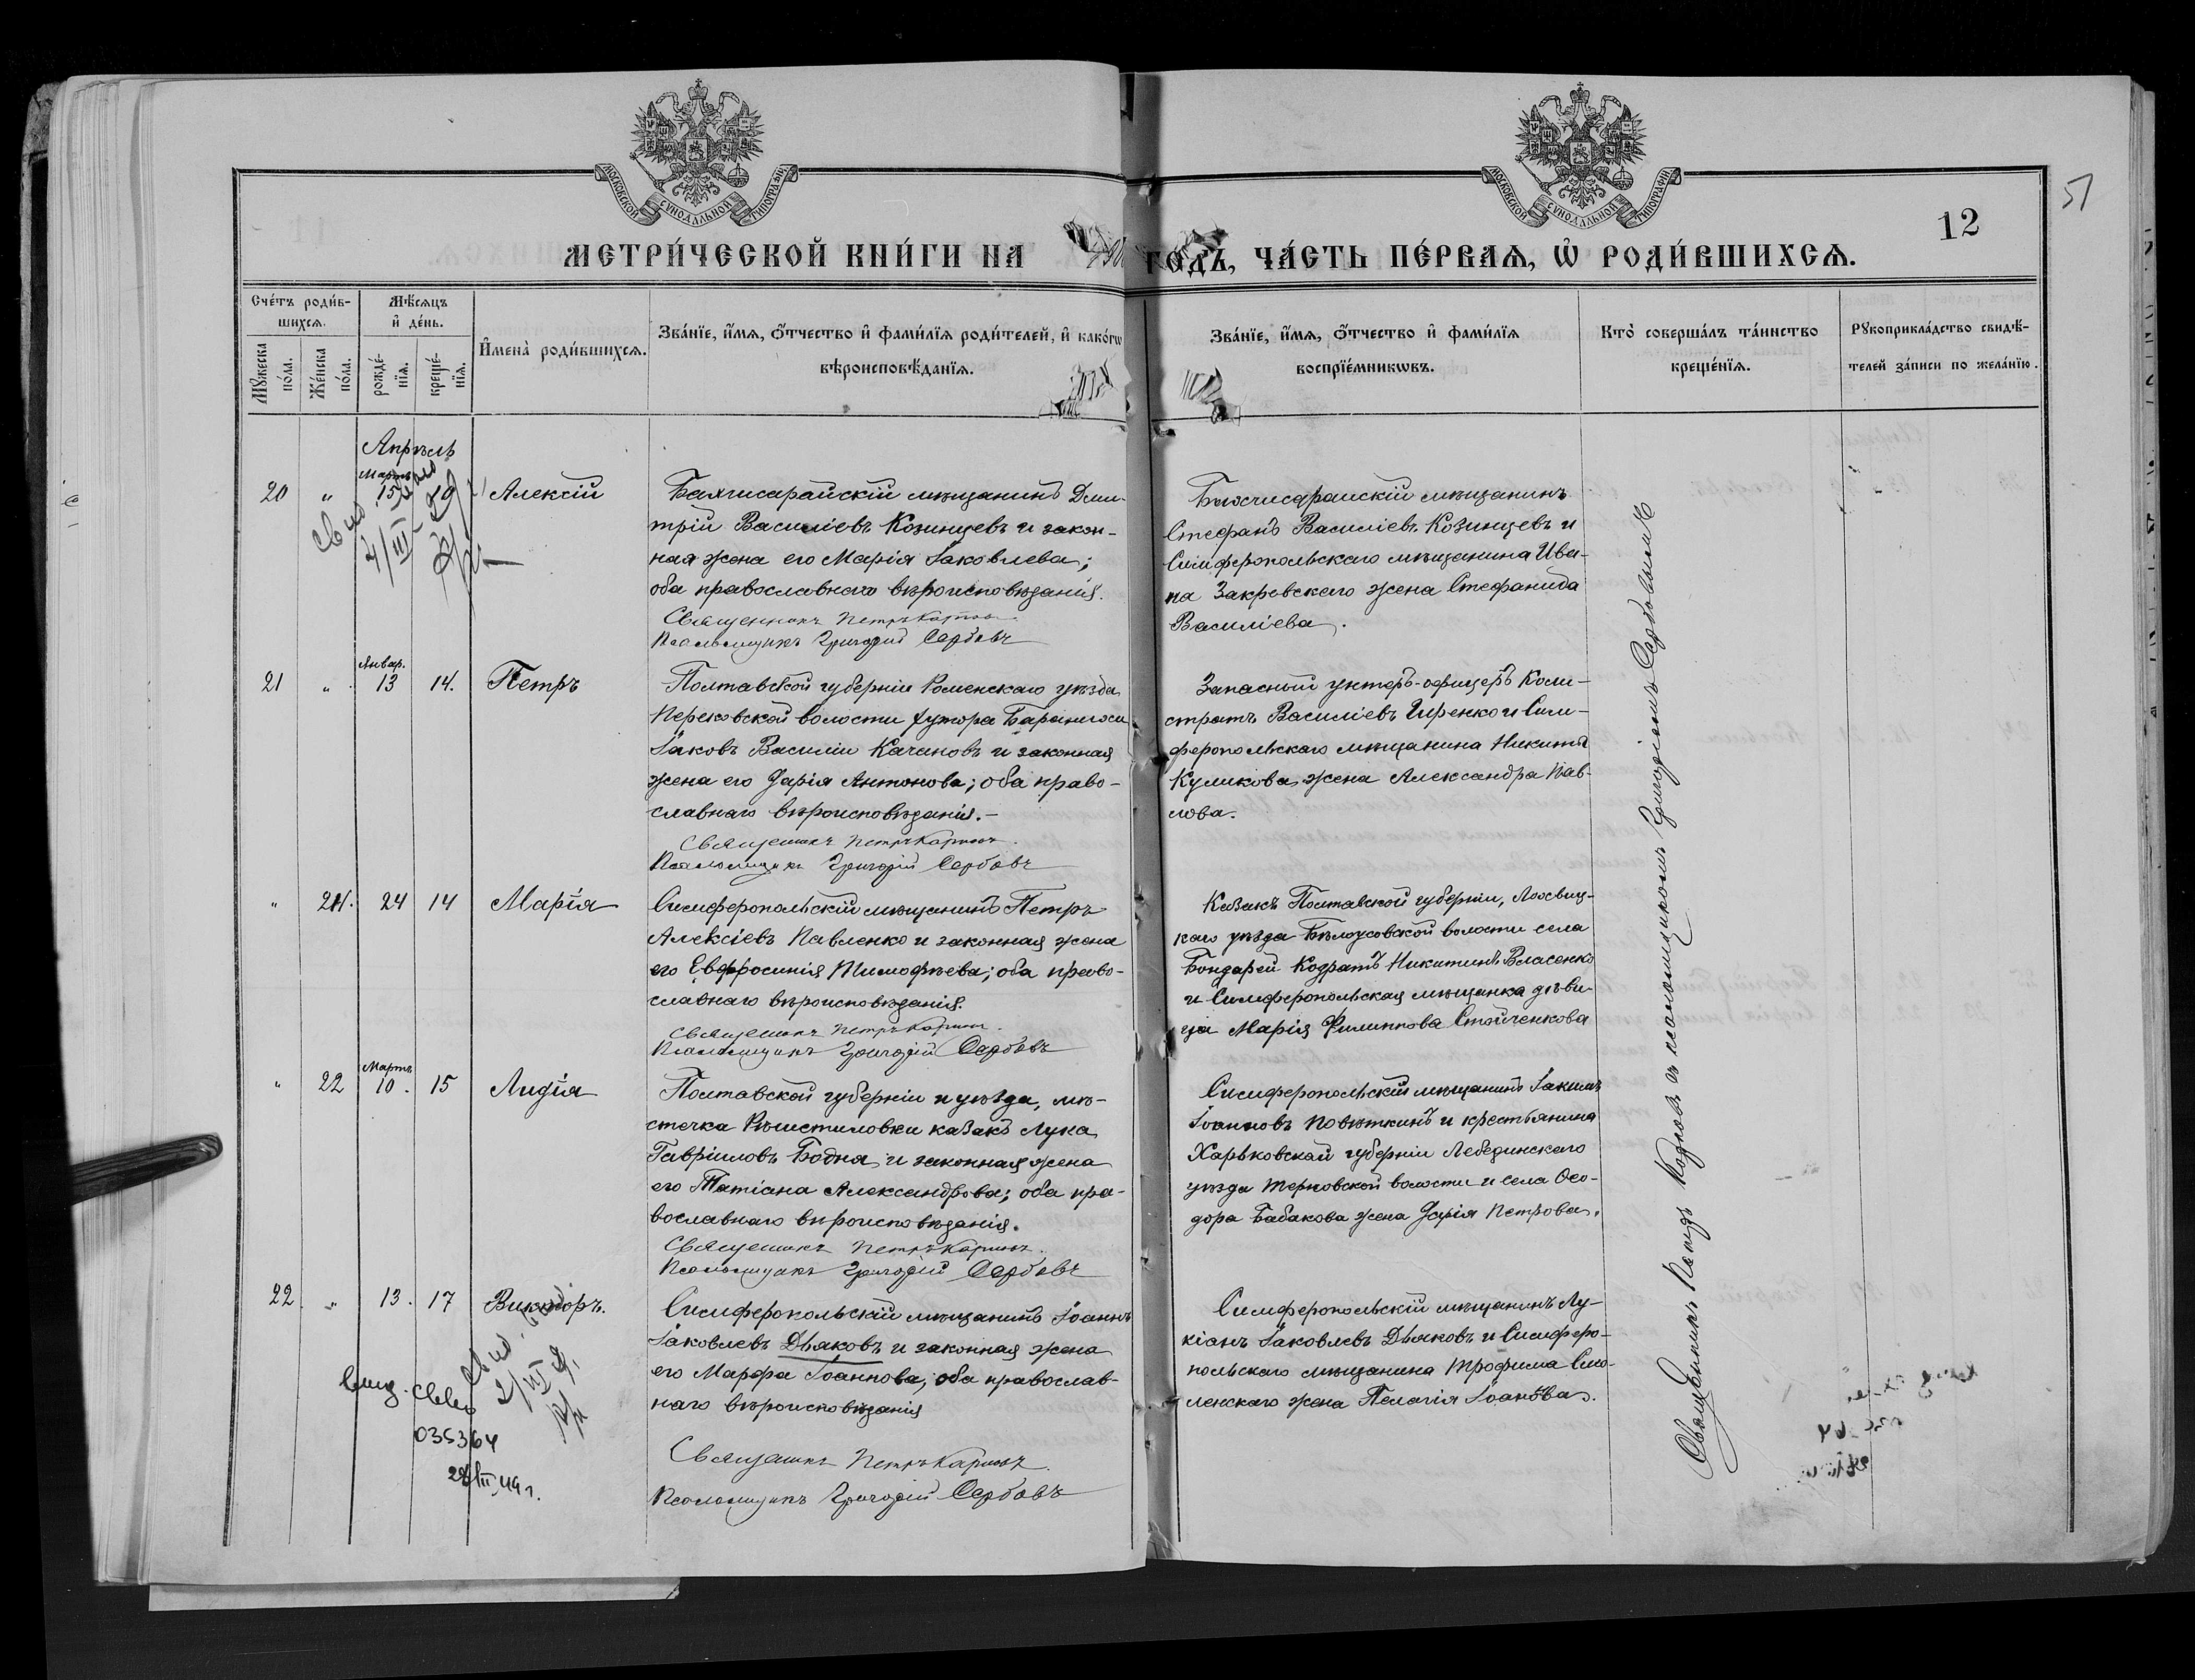 МОСКОВСКОЙ СѴНОДАЛЬНОЙ ТИПОГРАФІИ
МОСКОВСКОЙ СѴНОДАЛЬНОЙ ТИПОГРАФІИ
51
12
МЕТРИ́ЧЕСКОЙ КНИ́ГИ НА ГОДЪ, ЧА́СТЬ ПЕ́РВАѦ, Ѡ҆ РОДИ́ВШИХСѦ.
Сче́тъ роди́вшихсѧ.
Мꙋ́жеска по́ла.
Же́нска по́ла.
Мѣ́сѧцъ и҆ де́нь.
рожде́нїѧ.
креще́нїѧ.
И҆мена̀ роди́вшихсѧ.
Зва́нїе, и҆́мѧ, ѻ҆́тчество и҆ фами́лїѧ роди́телей, и҆ како́гѡ
вѣроисповѣ́данїѧ.
Зва́нїе, и҆́мѧ, ѻ҆́тчество и҆ фами́лїѧ
воспрїе́мникѡвъ.
Кто̀ соверша́лъ та́инство
креще́нїѧ.
Рꙋкоприкла́дство свидѣ́-
телей за́писи по жела́нїю.
Апрѣль
Мартъ
20 " 15 Алексій
Бахчисарайскій мѣщанинъ Дми-
трій Василіевъ Козинцевъ и закон-
ная жена его Марія Іаковлева;
оба православнаго вѣроисповѣданія.
Священникъ Петръ Карповъ
Псаломщикъ Григорій Сербовъ
Бахчисарайскій мѣщанинъ
Стефанъ Василіевъ Козинцевъ и
Симферопольскаго мѣщанина Ива-
на Закревскаго жена Стефанида
Василіева.
Январ.
21 " 13 14. Петръ
Полтавской губерніи Роменскаго уѣзда
волости хутора
Іаковъ Василіи Качановъ и законная
жена его Дарія Антонова; оба право-
славнаго вѣроисповѣданія.-
Священникъ Петръ Карповъ
Псаломщикъ Григорій Сербовъ
Запасный унтеръ-офицеръ Кали-
стратъ Василіевъ Ширенко и Сим-
феропольскаго мѣщанина Никиты
Куликова жена Александра Пав-
лова.
" 21. 24 14 Марія
Симферопольскій мѣщанинъ Петръ
Алексіевъ Павленко и законная жена
его Евфросинія Тимофѣева; оба право-
славнаго вѣроисповѣданія.
Священникъ Петръ Карповъ.
Псаломщикъ Григорій Сербовъ
Казакъ Полтавской губерніи, Лохвиц-
каго уѣзда Бѣлоусовской волости села
Бондарей Кодратъ Никитинъ Власенко
и Симферопольская мѣщанка дѣви-
ца Марія Филиппова Стойченкова
Мартъ
" 22 10. 15 Лидія
Полтавской губерніи и уѣзда, мѣ-
стечка Рѣшетиловки казакъ Лука
Гавріиловъ Бодня и законная жена
его Татіана Александрова; оба пра-
вославнаго вѣроисповѣданія.
Священникъ Петръ Карповъ.
Псаломщикъ Григорій Сербовъ
Симферопольскій мѣщанинъ Іакимъ
Іоанновъ Повѣткинъ и крестьянина
Харьковской губерніи Лебединскаго
уѣзда Терновской волости и села Ѳео-
дора Бабакова жена Дарія Петрова.
22. " 13. 17 Викторъ.
Симферопольскій мѣщанинъ Іоаннъ
Іаковлевъ Дьяковъ и законная жена
его Марфа Іоаннова; оба православ-
наго вѣроисповѣданія
Священникъ Петръ Карповъ.
Псаломщикъ Григорій Сербовъ
Симферопольскій мѣщанинъ Лу-
кіанъ Іаковлевъ Дьяковъ и Симферо-
польскаго мѣщанина Трофима Смо-
ленскаго жена Пелагія Іоаннова.
035364
Священникъ съ псаломщикомъ Григоріемъ Сербовымъ